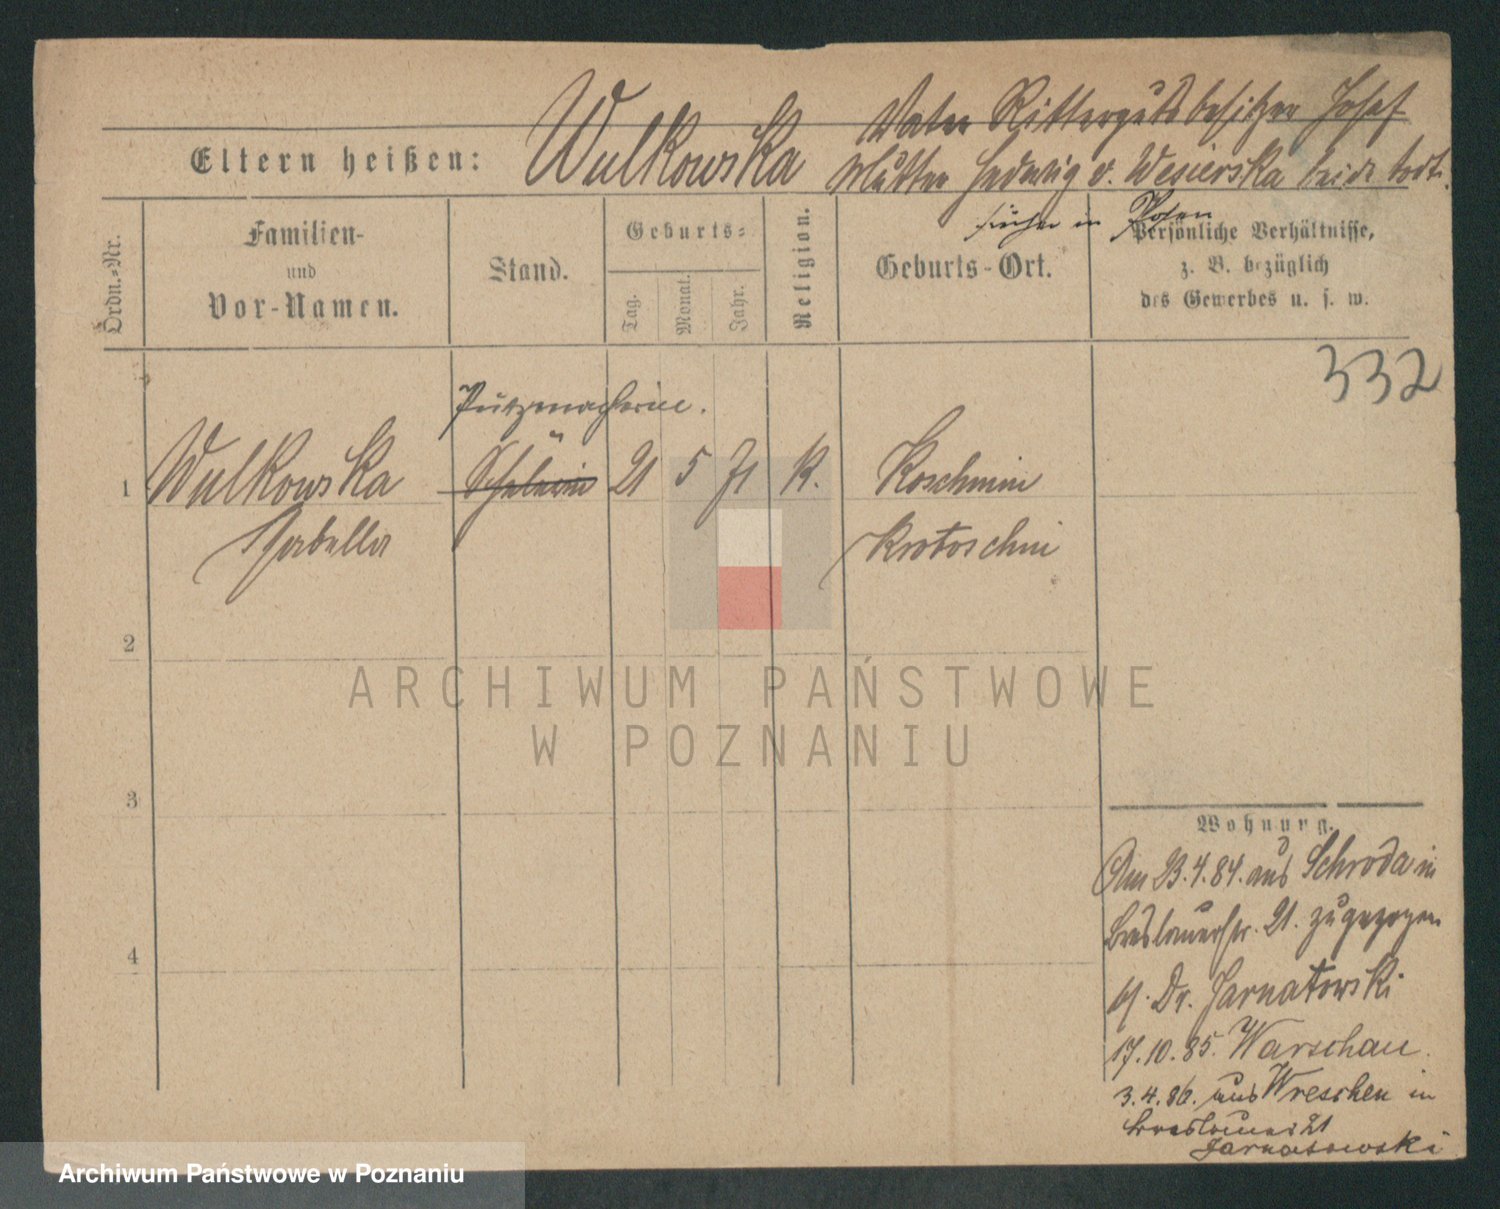 Vater Rittergutsbesitzer Josef
Eltern heißen: Wulkowska Mutter Hedwig v. Wesierska beide todt.
früher in Posen
Ordn.-Nr.
Familien-
und
Vor-Namen.
Stand.
Geburts-
Tag. Monat. Jahr.
Religion.
Geburts-Ort.
Persönliche Verhältnisse,
z. B. bezüglich
des Gewerbes u. s. w.
332
Putzmacherin.
1 Wulkowska Schülerin 21 5 71 K. Koschmin
Isabella Krotoschin
2
ARCHIWUM PAŃSTWOWE
W POZNANIU
3
Wohnung.
Am 23.4.84. aus Schroda in
Breslauerstr. 21. zugezogen
b/. Dr. Jarnatowski
17.10.85. Warschau.
3.4.86. aus Wreschen in
Breslauer 21
Jarnatowski
4
Archiwum Państwowe w Poznaniu